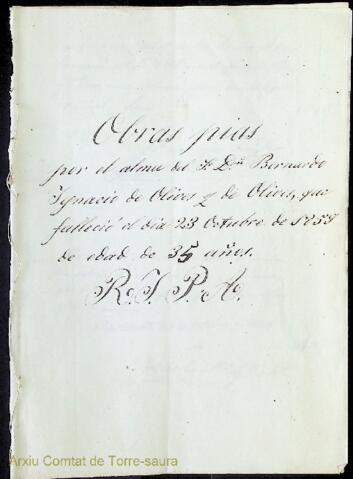 Obras pias
por el alma del S. Dn. Bernardo
Ygnacio de Olives y de Olives, que
falleció el dia 23 Octubre de 1855
de edad de 35 años.
R. I. P. A.
Arxiu Comtat de Torre-saura